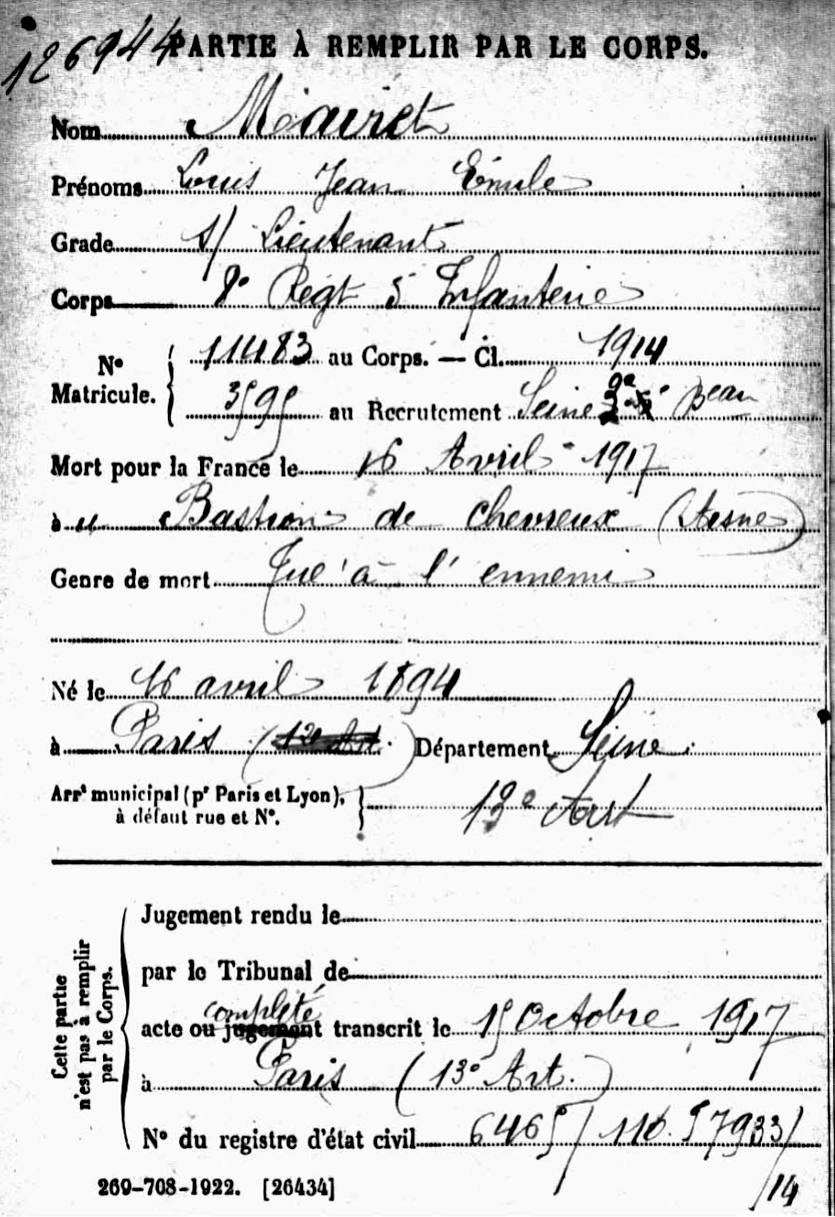 126944 PARTIE À REMPLIR PAR LE CORPS.
Nom Mairet
Prénoms Louis Jean Emile
Grade S/ Lieutenant
Corps 8e Régt d'Infanterie
No Matricule. { 11483 au Corps. — Cl. 1914
3595 au Recrutement Seine 2e Beau
Mort pour la France le 16 Avril 1917
à u Bastion de Chevreux (Aisne)
Genre de mort Tué à l'ennemi
Né le 16 avril 1894
à Paris (12e Art.) Département Seine
Arrt municipal (pr Paris et Lyon), à défaut rue et No. } 13e Art
Cette partie n'est pas à remplir par le Corps.
Jugement rendu le
par le Tribunal de
complété
acte ou jugement transcrit le 15 Octobre 1917
à Paris (13e Art.)
No du registre d'état civil 6465/ 110. 57933/
269-708-1922. [26434] /14